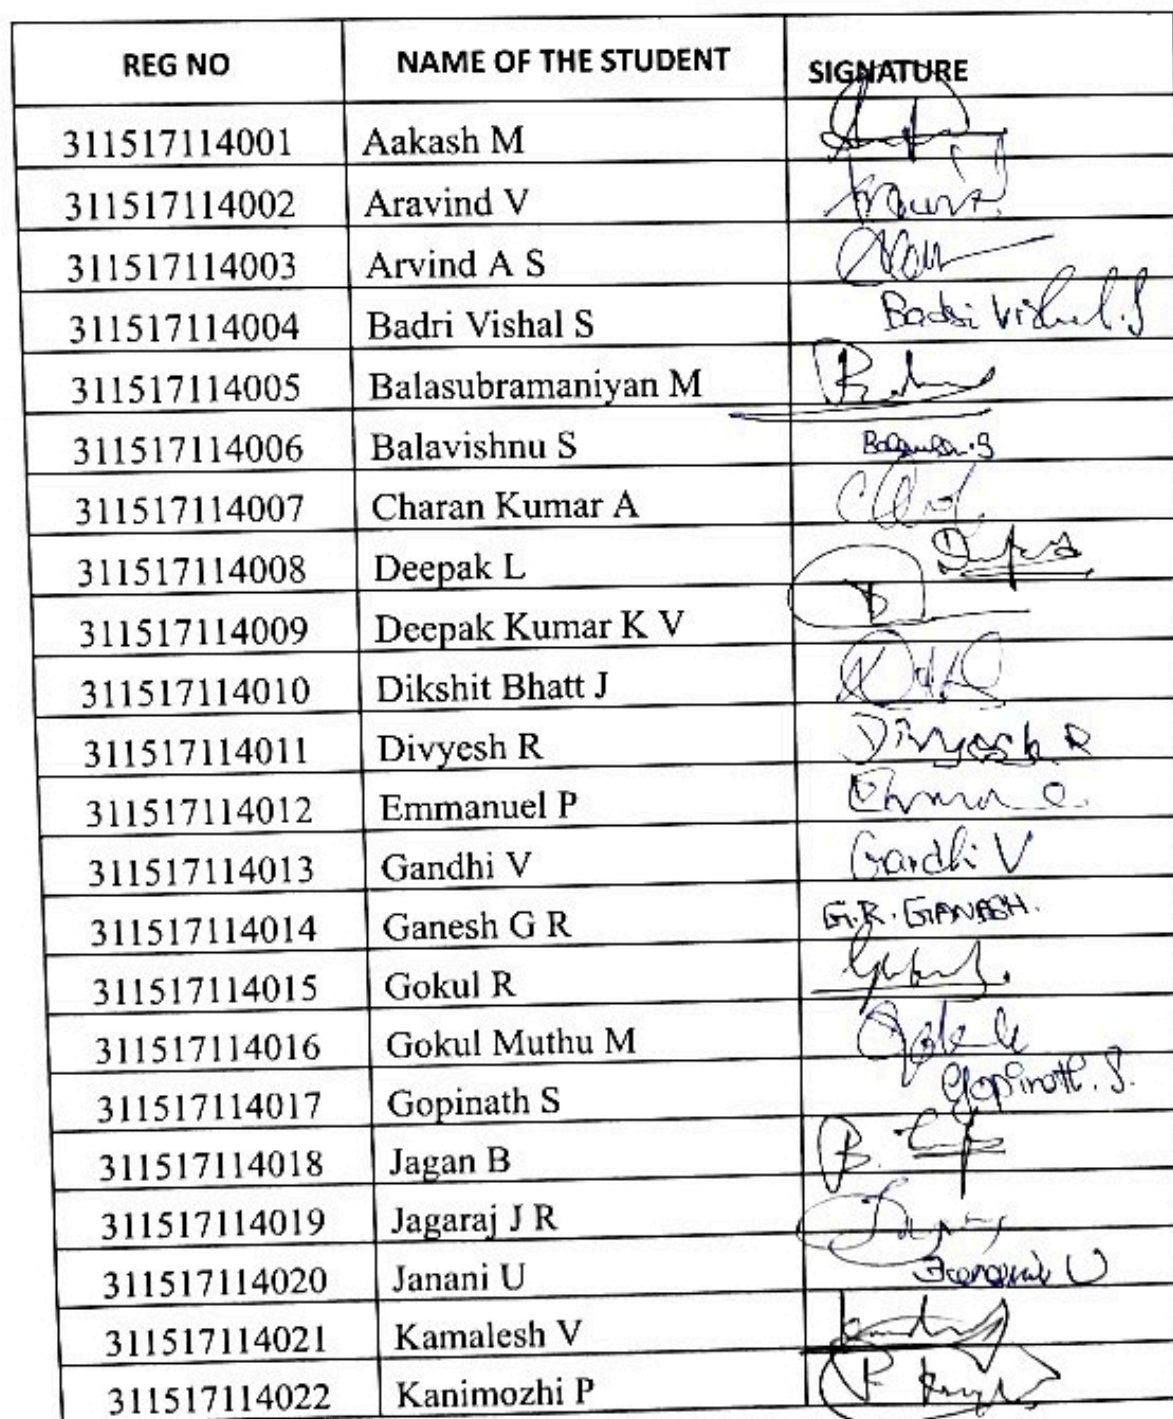 REG NO NAME OF THE STUDENT SIGNATURE
311517114001 Aakash M
311517114002 Aravind V
311517114003 Arvind A S
311517114004 Badri Vishal S Badri Vishal.S
311517114005 Balasubramaniyan M
311517114006 Balavishnu S
311517114007 Charan Kumar A
311517114008 Deepak L
311517114009 Deepak Kumar K V
311517114010 Dikshit Bhatt J
311517114011 Divyesh R Divyesh R
311517114012 Emmanuel P
311517114013 Gandhi V Gandhi V
311517114014 Ganesh G R G.R. GANESH.
311517114015 Gokul R
311517114016 Gokul Muthu M
311517114017 Gopinath S Gopinath. S.
311517114018 Jagan B
311517114019 Jagaraj J R
311517114020 Janani U Janani U
311517114021 Kamalesh V
311517114022 Kanimozhi P